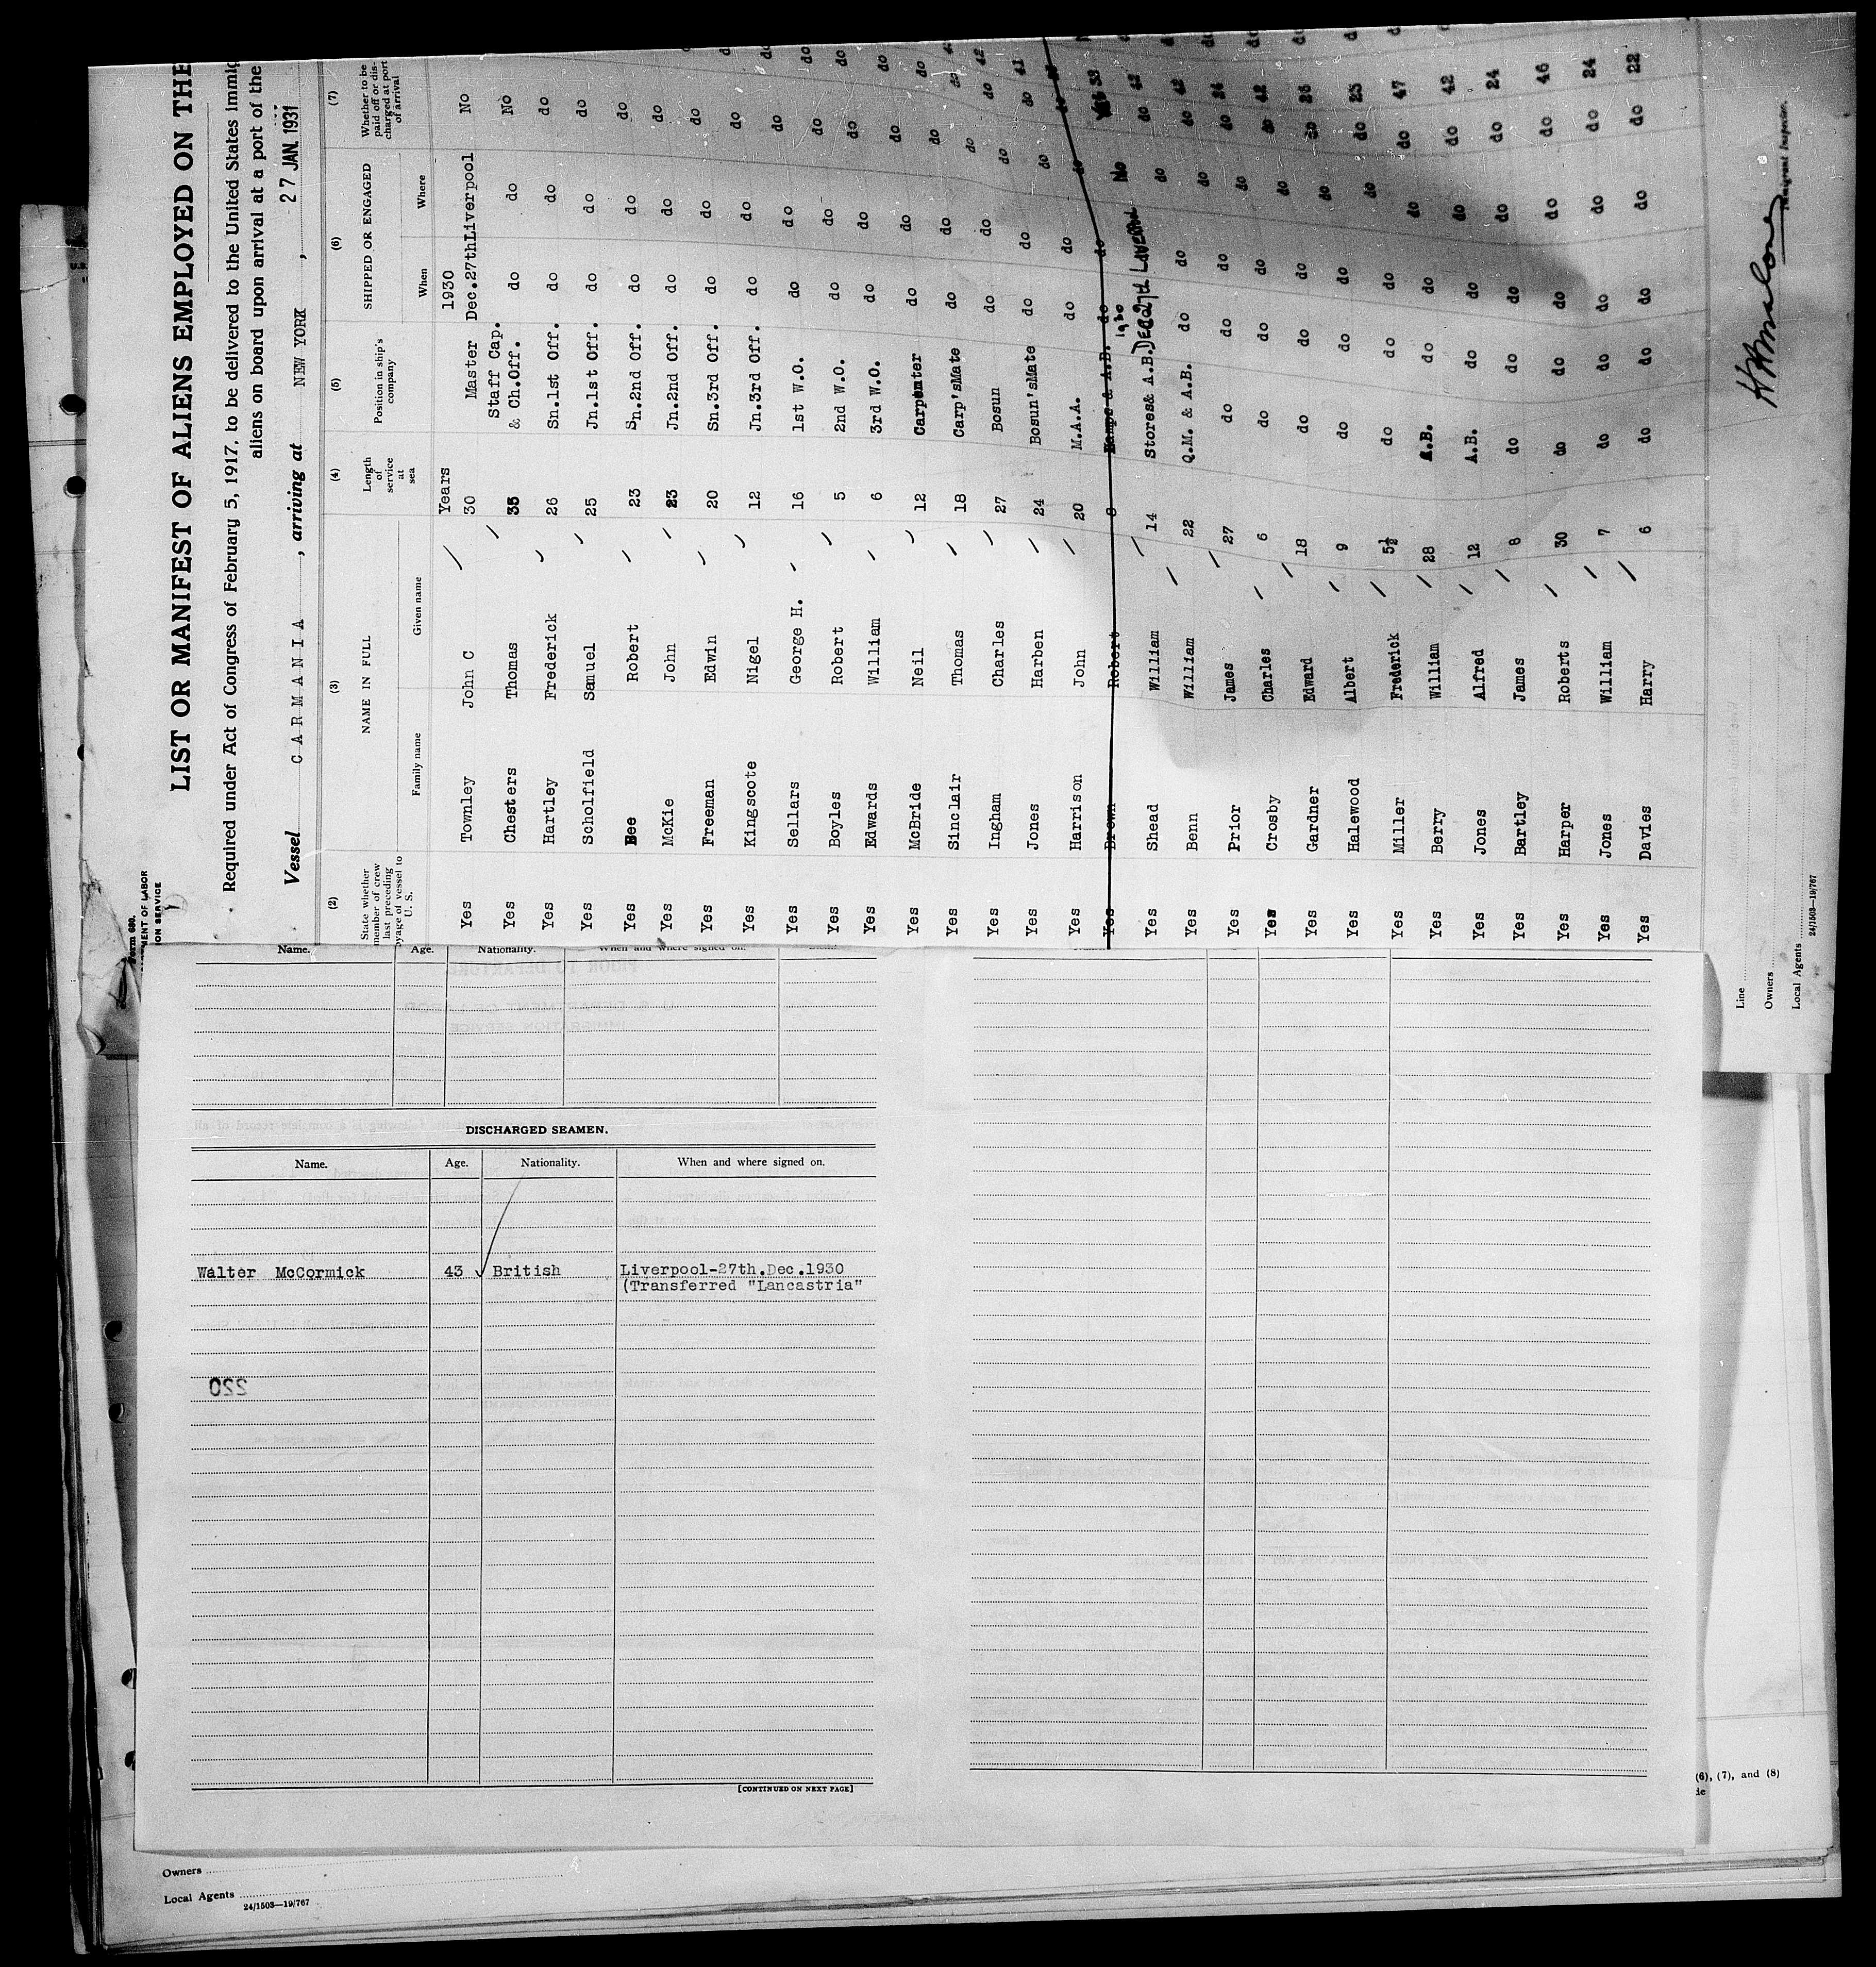 LIST OR MANIFEST OF ALIENS EMPLOYED ON THE
Required under Act of Congress of February 5, 1917, to be delivered to the United States Immig
aliens on board upon arrival at a port of the
Vessel CARMANIA, arriving at NEW YORK, 27 JAN. 1931
(2) (3) (4) (5) (6) (7)
State whether member of crew last preceding voyage of vessel to U. S. NAME IN FULL Length of service at sea Position in ship's company SHIPPED OR ENGAGED Whether to be paid off or discharged at port of arrival
Family name Given name When Where
Years 1930
Yes Townley John C 30 Master Dec.27th Liverpool No
Staff Cap.
Yes Chesters Thomas 35 & Ch.Off. do do No
Yes Hartley Frederick 26 Sn.1st Off. do do do
Yes Scholfield Samuel 25 Jn.1st Off. do do do
Yes Bee Robert 23 Sn.2nd Off. do do do
Yes McKie John 23 Jn.2nd Off. do do do
Yes Freeman Edwin 20 Sn.3rd Off. do do do
Yes Kingscote Nigel 12 Jn.3rd Off. do do do
Yes Sellars George H. 16 1st W.O. do do do
Yes Boyles Robert 5 2nd W.O. do do do
Yes Edwards William 6 3rd W.O. do do do
Yes McBride Neil 12 Carpenter do do do
Yes Sinclair Thomas 18 Carp'sMate do do do
Yes Ingham Charles 27 Bosun do do do do 42
Yes Jones Harben 24 Bosun'sMate do do do do 41
Yes Harrison John 20 M.A.A. do do do
Yes Brown Robert 8 Lamps & A.B. do do do
1930
Yes Shead William 14 Stores& A.B. Dec 27th No 33
Yes Benn William 22 Q.M. & A.B. do do do do 42
Yes Prior James 27 do do do do do 42
Yes Crosby Charles 6 do do do do do
Yes Gardner Edward 18 do do do do do 42
Yes Halewood Albert 9 do do do do do 26
Yes Miller Frederick 5½ do do do do do 25
Yes Berry William 28 A.B. do do do do 47
Yes Jones Alfred 12 A.B. do do do do 42
Yes Bartley James 8 do do do do do 24
Yes Harper Roberts 30 do do do do do 46
Yes Jones William 7 do do do do do 24
Yes Davies Harry 6 do do do do do 22
Immigrant Inspector.
Line
Owners
Local Agents
24/1503—19/767
Form 680.
MENT OF LABOR
ION SERVICE
Name. Age. Nationality. When and where signed on.
DISCHARGED SEAMEN.
Name. Age. Nationality. When and where signed on.
Walter McCormick 43 British Liverpool-27th.Dec.1930
(Transferred "Lancastria"
220
[CONTINUED ON NEXT PAGE]
(6), (7), and (8)
Owners
Local Agents
24/1503—19/767